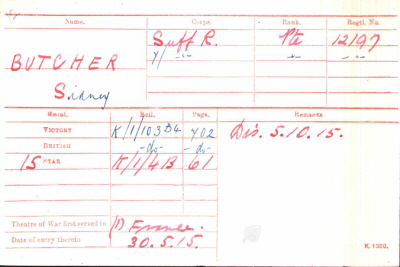 Name. Corps. Rank. Regtl. No.
BUTCHER Suff R. Pte 12197
Y/ -"- -"- -"-
Sidney
Medal. Roll. Page. Remarks
VICTORY K/1/103 B4 702 Dis. 5.10.15.
BRITISH -do- -do-
15 STAR K/1/4B 61
Theatre of War first served in (1) France.
Date of entry therein 30.5.15.
K. 1380.